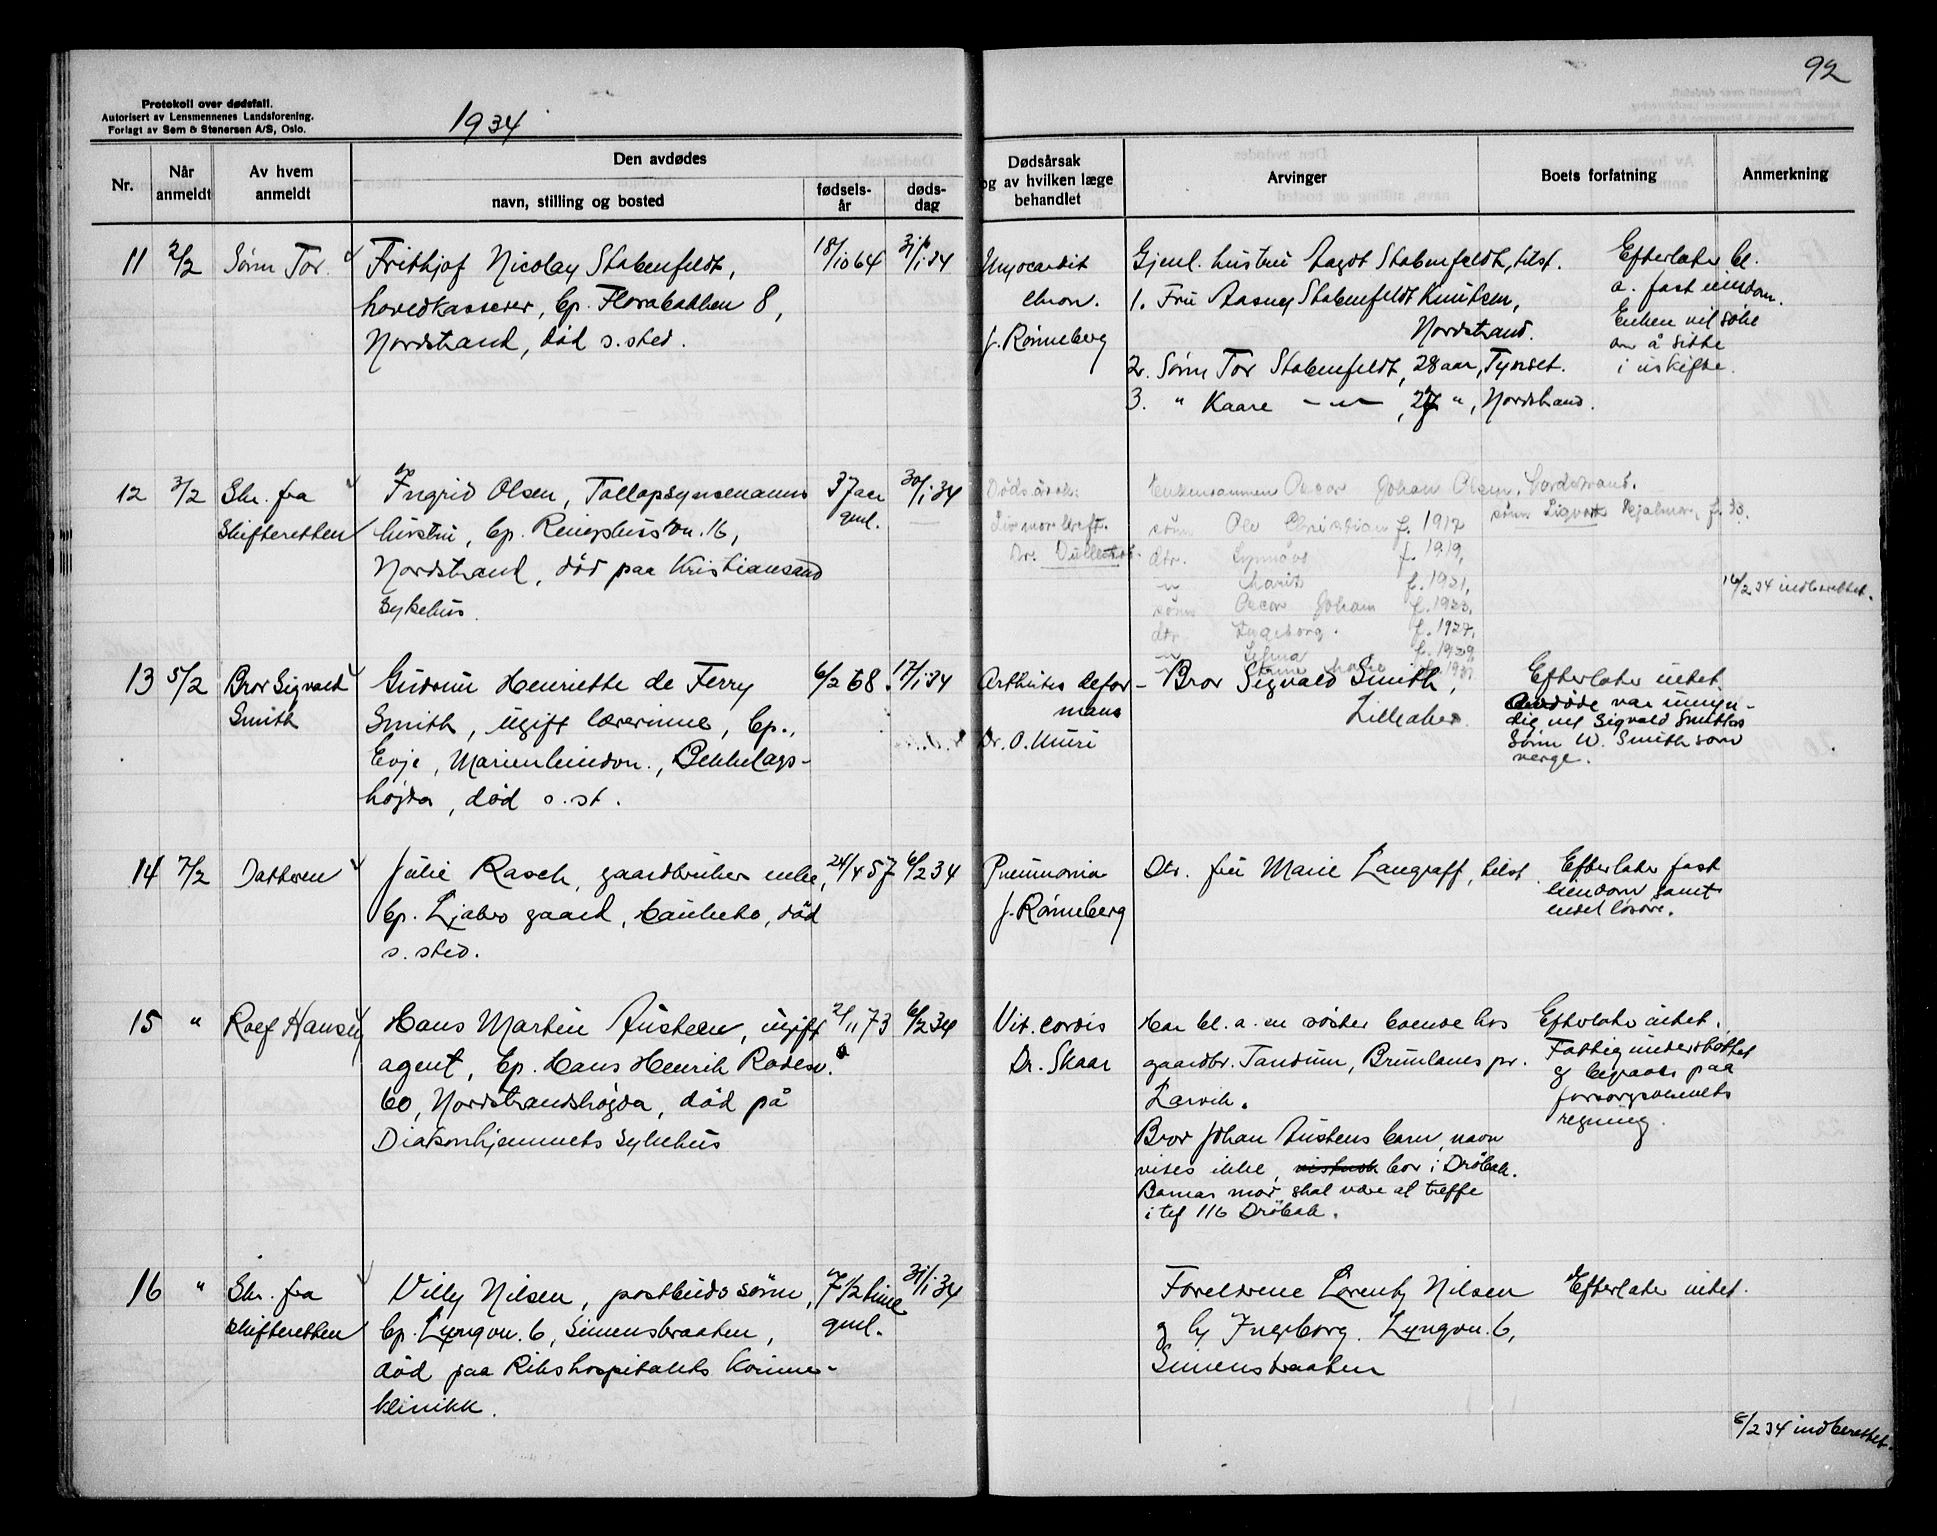 92
Protokoll over dødsfall.
Autorisert av Lensmennenes Landsforening.
Forlagt av Sem & Stenersen A/S, Oslo.
1934
Nr.
Når anmeldt
Av hvem anmeldt
Den avdødes
navn, stilling og bosted
fødsels-år
døds-dag
Dødsårsak
og av hvilken læge
behandlet
Arvinger
Boets forfatning
Anmerkning
11 2/2 Sønn Tor. Frithjof Nicolay Stabenfeldt, 18/10 64 31/1 34
hovedkasserer, bp. Florabakken 8,
Nordstrand, død s. sted.
Myocardit
chron.
J. Rønneberg
Gjenl. hustru Aagot Stabenfeldt, tilst.
1. Fru Aasny Stabenfeldt Knutsen,
Nordstrand.
2. Sønn Tor Stabenfeldt, 28 aar, Tynset.
3. " Kaare -"- , 27 ", Nordstrand.
Efterlater bl.
a. fast eiendom.
Enken vil søke
om å sitte
i uskifte.
12 3/2 Skr. fra Ingrid Olsen, Tollopsynsmanns 37 aar 30/1 34
Skifteretten hustru, bp. Solveien 16, gml.
Nordstrand, død paa Kristiansand
sykehus.
Dødsårsak:
Dr.
Enkemannen Oscar Johan Olsen, Nordstrand.
sønn Ole Christian f. 1917
sønn Sigvart Hjalmar, f. 33.
dtr. Synnøve f. 1919,
" Marit f. 1921,
sønn Oscar Johan f. 1923,
dtr. Ingeborg. f. 1927,
" Selma f. 1929,
16/2 34 indberettet.
13 5/2 Bror Sigvald Gudrun Henriette de Ferry 6/2 68. 17/1 34
Smith Smith, ugift lærerinne, bp.,
Evje, Marienlundvn., Bekkelags-
høgda, død s. st.
Arthrites defor-
mans
Dr. O. Muri
Bror Sigvald Smith,
Lilleaker.
Efterlater intet.
Avdøde var umyn-
dig med Sigvald Smiths
sønn W. Smith som
verge.
14 7/2 Datteren Julie Rasch, gaardbruker enke, 24/4 57 6/2 34
bp. Ljabro gaard, Hauketo, død
s. sted.
Pneumonia
J. Rønneberg
Dtr. fru Marie Langraff, tilst.
Efterlater fast
eiendom samt
endel løsøre.
15 " Rolf Hansen Hans Martin Austeen, ugift 2/11 73 6/2 34
agent, bp. Hans Henrik Rodesv.
60, Nordstrandshøgda, død på
Diakonhjemmets sykehus
Vit. cordis
Dr. Skaar
Har bl. a. en søster boende hos
gaardbr. Tandum, Brunlanes pr.
Larvik.
Bror Johan Austeens barn, navn
vites ikke, bor i Drøbak.
Barnas mor skal være at treffe
i tlf 116 Drøbak.
Efterlater intet.
Fattigunderstøttet
og begraves paa
forsorgsvesenets
regning.
16 " Skr. fra Villy Nilsen, postbuds sønn, 7 1/2 time 31/1 34
skifteretten bp. Lyngvn. 6, Simensbraaten, gml.
død paa Rikshospitalets Kvinne-
klinikk.
Foreldrene Lorentz Nilsen
og h. Ingeborg. Lyngvn. 6,
Simensbraaten
Efterlater intet.
8/2 34 indberettet.